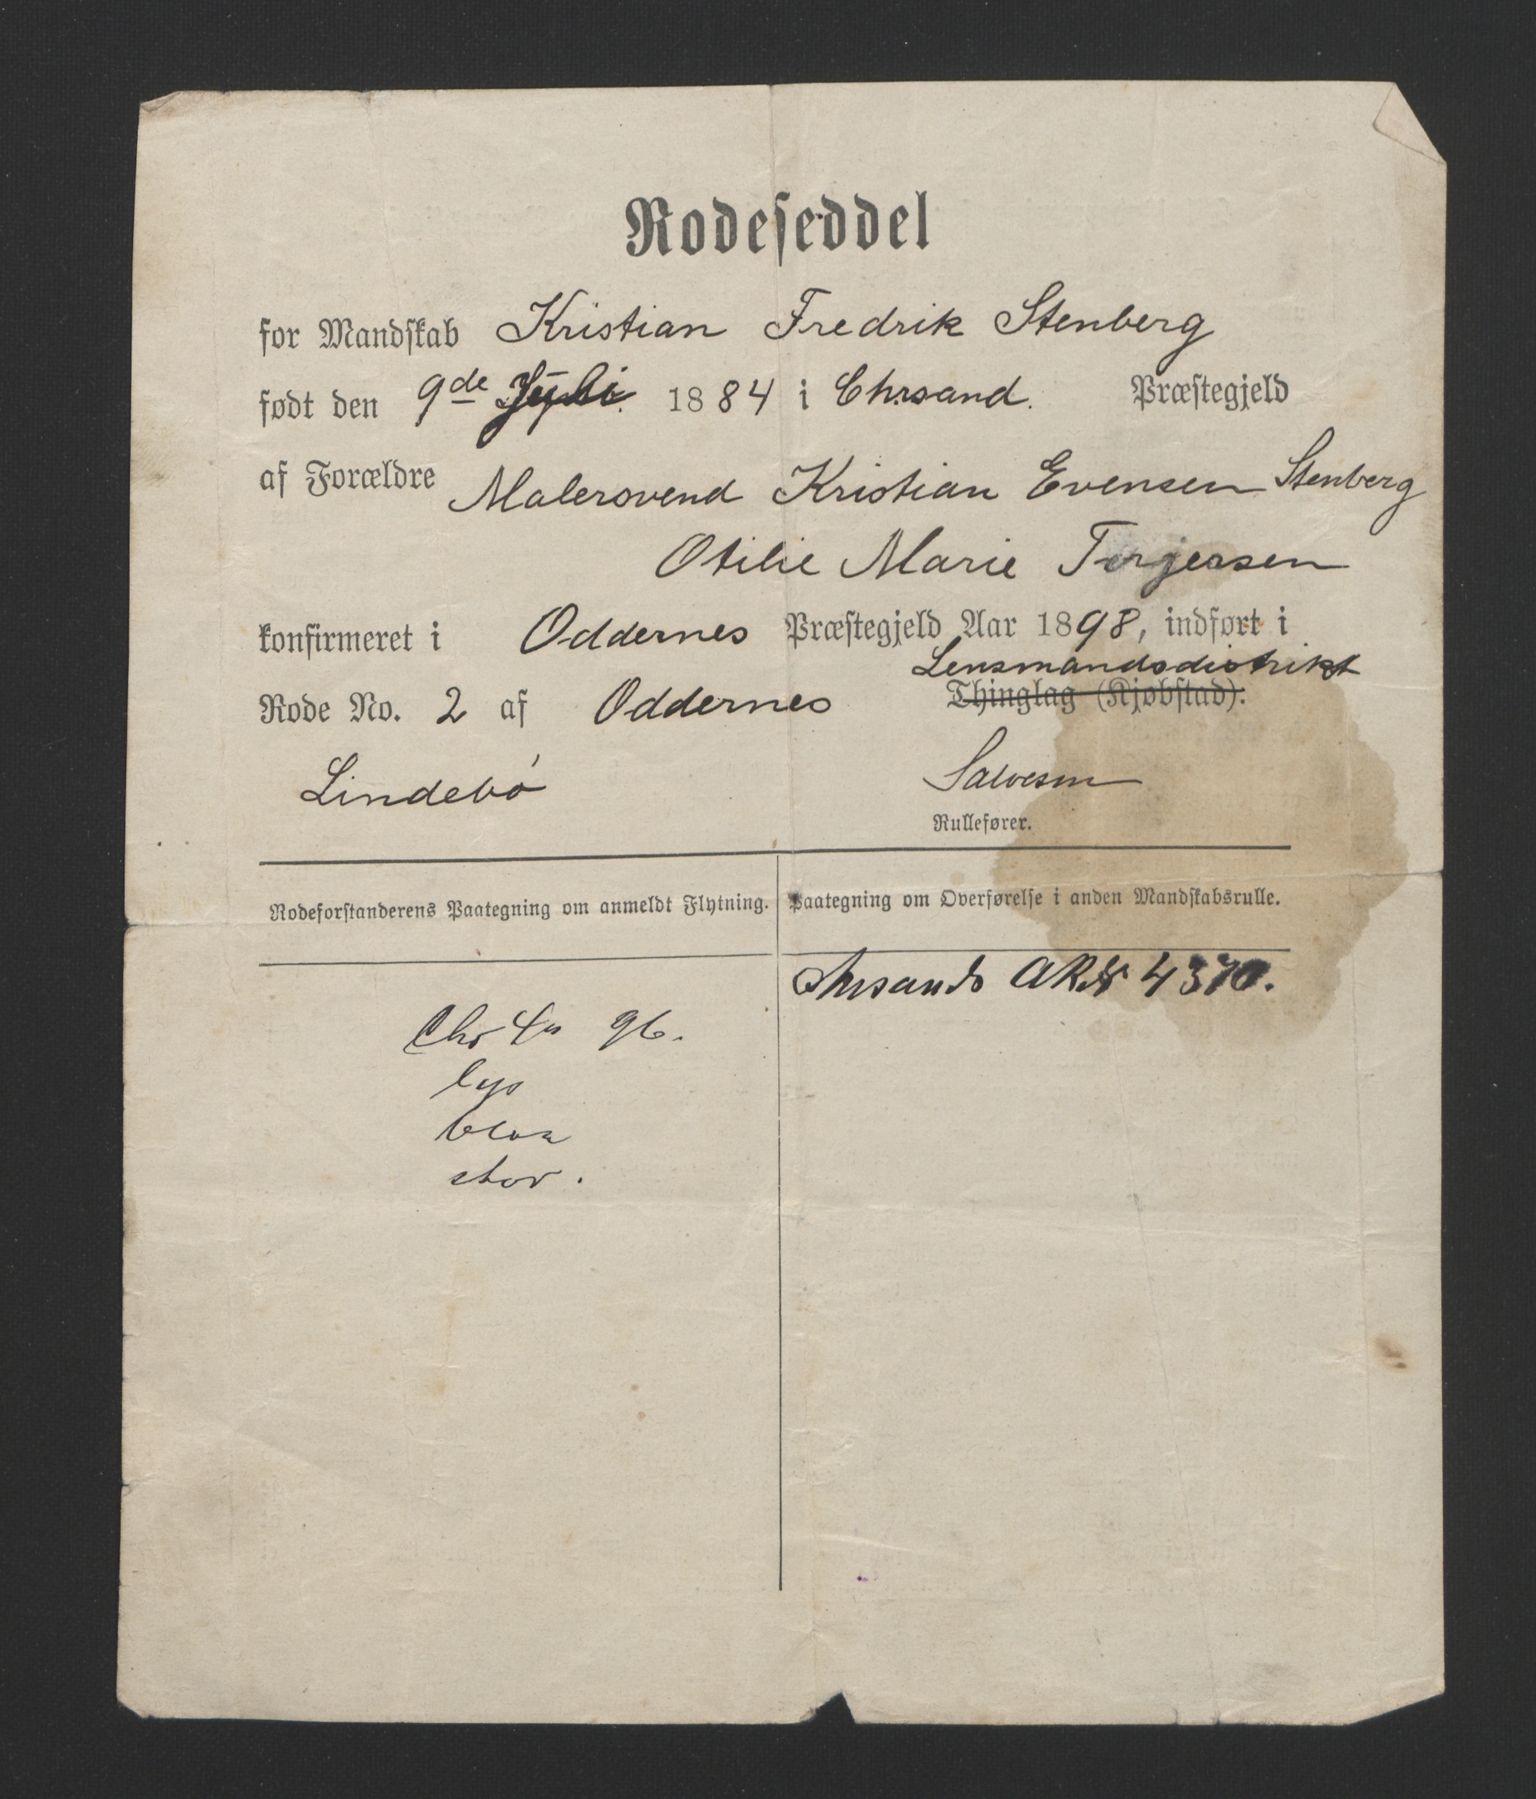 Rodeseddel
for Mandskab Kristian Fredrik Stenberg
født den 9de Juli 1884 i Chrsand. Præstegjeld
af Forældre Malersvend Kristian Evensen Stenberg
Otilie Marie Terjessen
konfirmeret i Oddernes Præstegjeld Aar 1898, indført i
Lensmandsdistrikt
Rode No. 2 af Oddernes Thinglag (Kjøbstad).
Lindebø Salvesen
Rullefører.
Rodeforstanderens Paategning om anmeldt Flytning.
Chr 96.
lys
blaa
stor.
Paategning om Overførelse i anden Mandskabsrulle.
Chrsands AR № 4370.